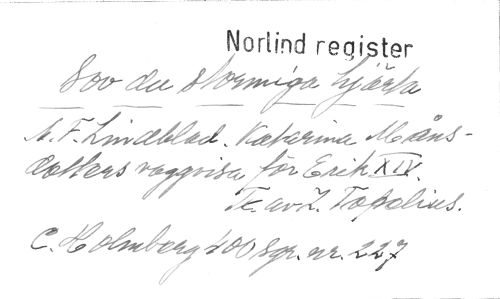 Norlind register
Sov du stormiga hjärta
A. F. Lindblad. Katarina Måns-
dotters vaggvisa för Erik XIV.
Tc. av Z. Topelius.
C. Holmberg 400 sgr. nr. 227